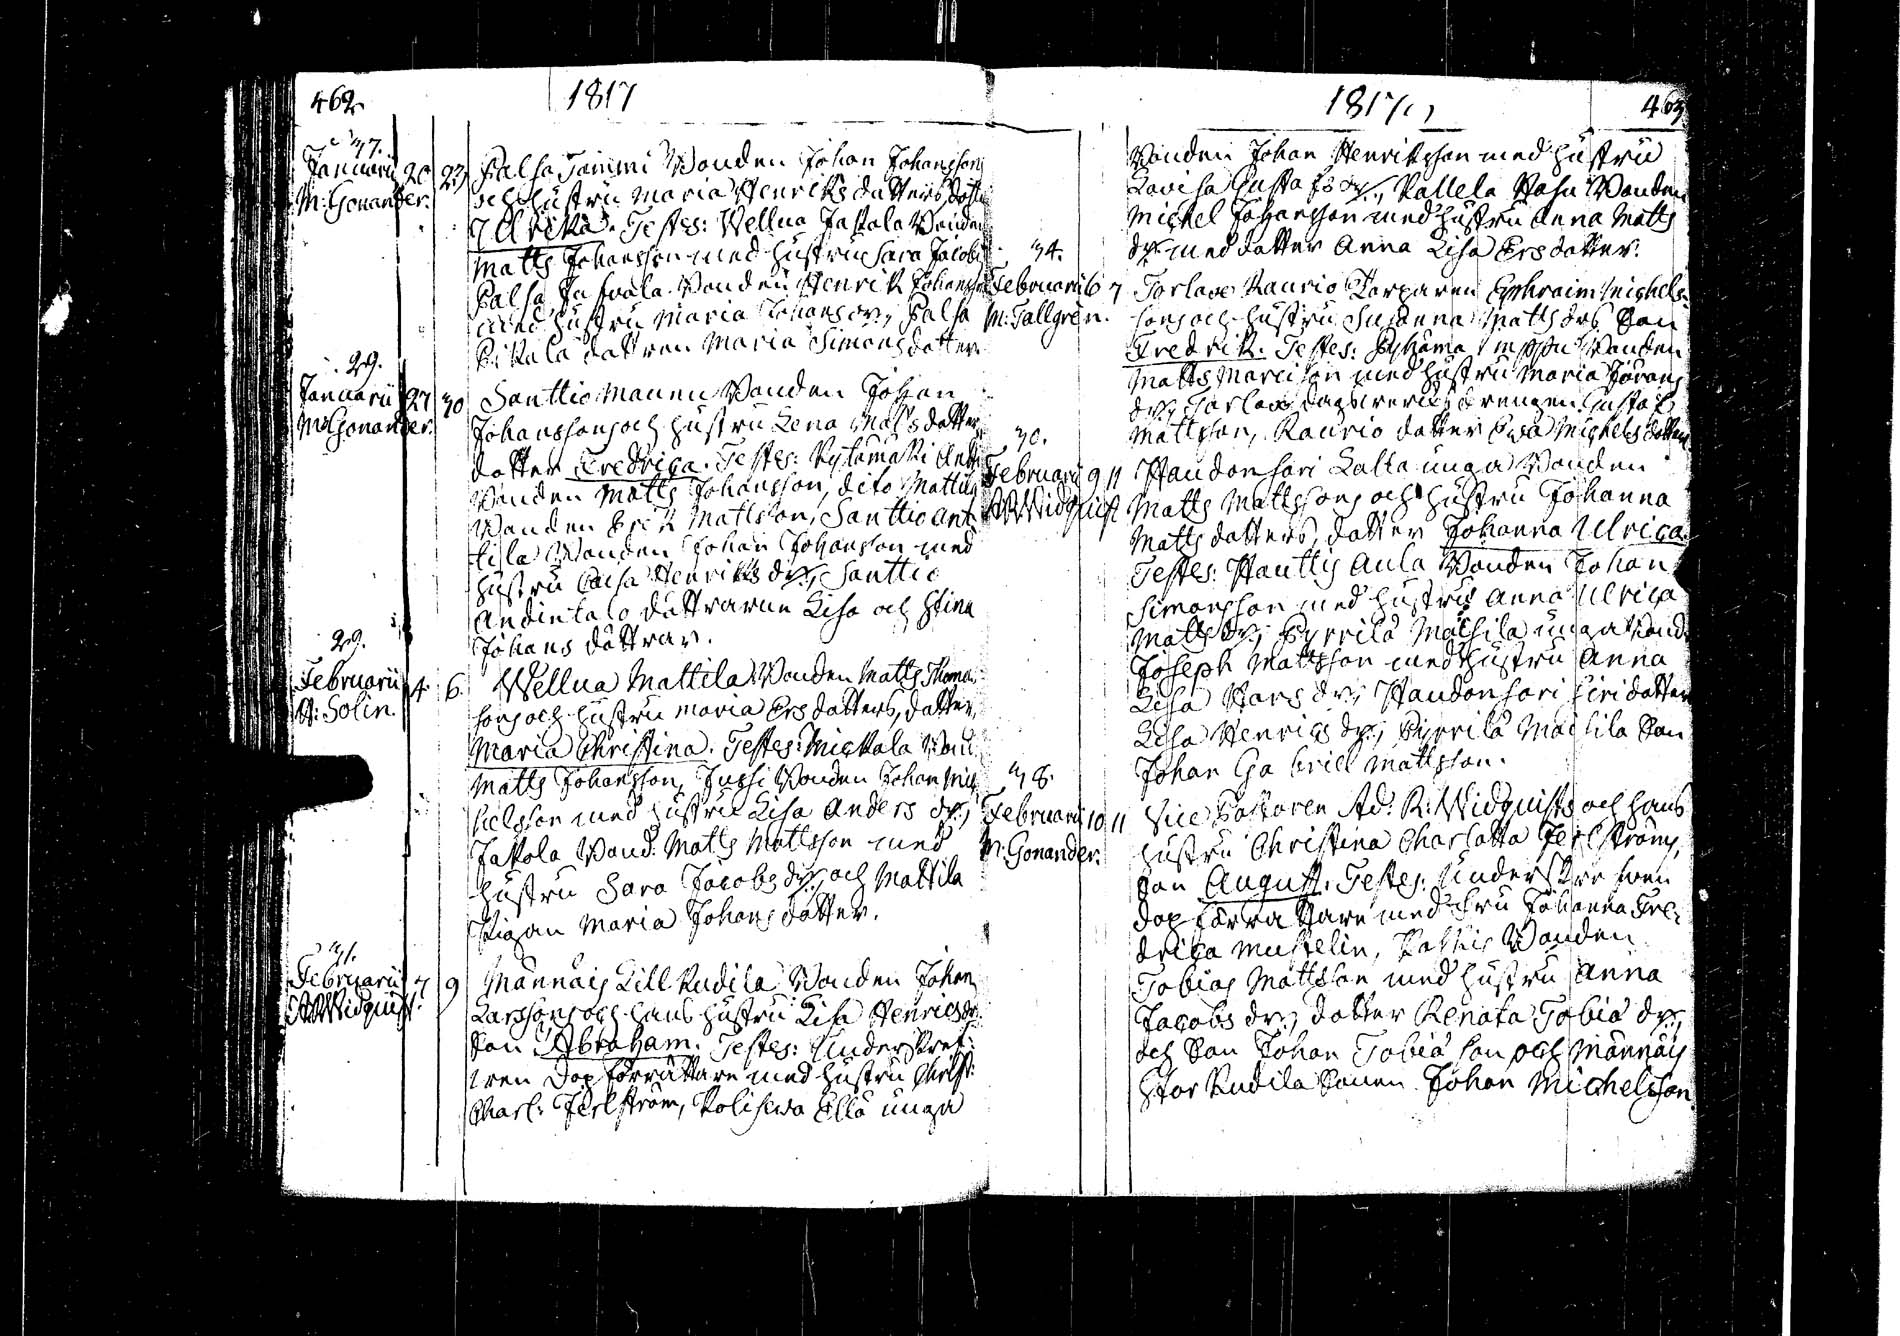 462
1817
37.
Januarii 26 27
M: Gonander.
Palsa Tammi Bonden Johan Johansons
och hustru Maria Henriks datters, dotter
Ulrika. Testes: Wellua Jaskola Bonden
Matts Johansson med hustru Sara Jacobs
Palsa Bonden Henrik Johansson
med hustru Maria Johans dr, Palsa
dattren Maria Simons datter.
29.
Januarii 27 30
M: Gonander.
Santtio Mannu Bonden Johan
Johanssons och hustru Lena Mats datter
datter Fredrica. Testes: Kylämäki
Bonden Matts Johansson, dito Mattila
Bonden Eric Mattsson, Santtio Ant
tila Bonden Johan Johansson med
hustru Caisa Henriks dr, Santtio
Andintalo dättrarne Lisa och Stina
Johans dättrar.
29.
Februarii 4 6
A: Solin.
Wellua Mattila Bonden Matts Thomas
sons och hustru Maria Ers datters, datter,
Maria Christina. Testes: Mickola Bond
Matts Johansson, Jussi Bonden Johan Mic
helsson med hustru Lisa Anders dr,
Jaskola Bond: Matts Mattsson med
hustru Sara Jacobs dr, och Mattila
Pigan Maria Johans datter.
31.
Februarii 7 9
AR Widquist.
Männäis Lill Rudila Bonden Johan
Larssons och hans hustru Lisa Henrics dr
Son Abraham. Testes: Underskref-
wen Dopförrättare med hustru Christ:
Charl: Ferlström, Polisewa Ella unga
1817
463
Bonden Johan Henriksson med hustru
Lovisa Gustafs dr, Kallela Pasu Bonden
Michel Johansson med hustru Anna Matts
dr med datter Anna Lisa Ers datter.
34.
Februarii 6 7
M: Tallgren.
Torlax Kaurio Torparen Ephraim Michels-
sons och hustru Susanna Matts drs Son
Fredrik. Testes: Pyhäma Bonden
Matts Marcison med hustru Maria Jörans
dr, Torlax drengen Gustaf
Mattsson, Kaurio datter Ewa Michels datter
30.
Februarii 9 11
AR Widquist
Haudonsari Lalla unga Bonden
Matts Mattssons och hustru Johanna
Matts datters, datter Johanna Ulrica.
Testes: Hauttis Aula Bonden Johan
Simonsson med hustru Anna Ulrica
Matts dr, Pyrrilä Maisila unga Bond:
Joseph Mattsson med hustru Anna
Lisa Lars dr, Haudonsari Siri datter
Lisa Henrics dr, Pyrrilä Maisila Son
Johan Gabriel Mattsson.
38.
Februarii 10 11
M: Gonander.
Vice Pastoren Ad: R: Widquists och hans
hustru Christina Charlotta Ferlströms,
Son August. Testes: Underskrefwen
Dopförrättare med Fru Johanna Fre-
drica Mustelin, Bonden
Tobias Mattsson med hustru Anna
Jacobs dr, datter Renata Tobiä dr,
och Son Johan Tobiä son och Männäis
Stor Rudila Sonen Johan Michelsson